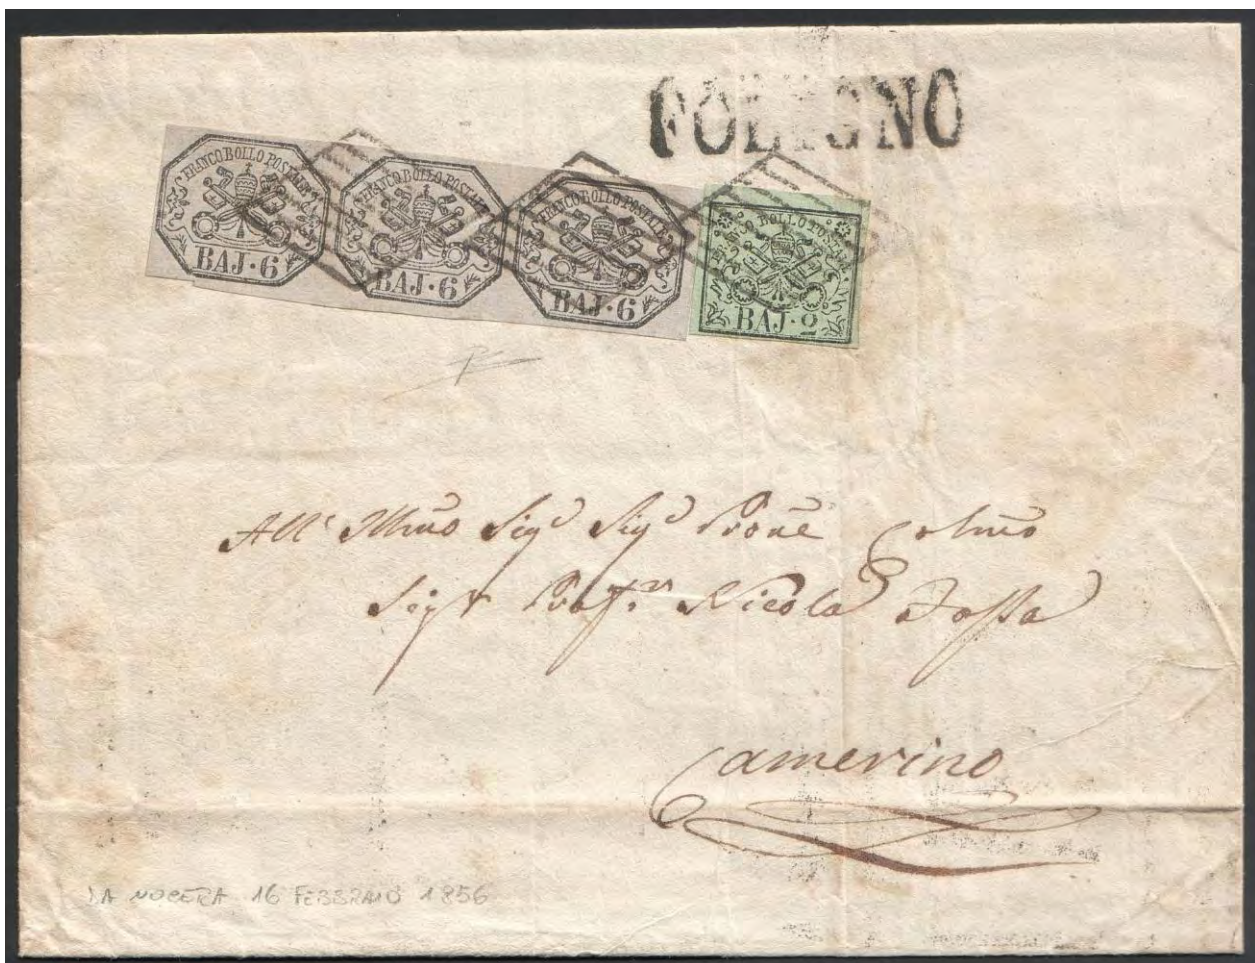 FOLIGNO
FRANCO BOLLO POSTALE
BAJ·6
FRANCO BOLLO POSTALE
BAJ·6
FRANCO BOLLO POSTALE
BAJ·6
FRANCO BOLLO POSTALE
BAJ·2
All' Illmo Sigr Sigr Prone Colmo
Sigr Profr Nicola
Camerino
DA NOCERA 16 FEBBRAIO 1856